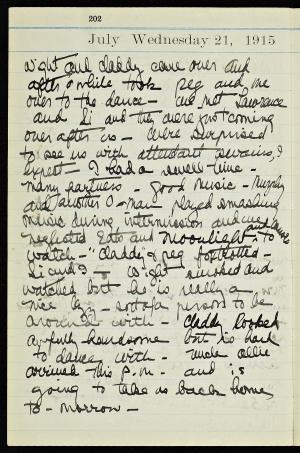 202
July Wednesday 21, 1915
Wight and daddy came over and
after a while took peg and me
over to the dance — we met Lawrence
and Si and they were just coming
over after us — were surprised
to see us with attendant swains, I
expect — I had a swell time —
many partners — good music — Murphy
and another O — man played smashing
music during intermission and we
neglected Eats and Moonlight and music to
watch — "daddy & peg foxtrotted —
Si and I — Wight smoked and
watched but he is really a
nice boy — sort of a person to be
around with — daddy looked
awfully handsome but is hard
to dance with — uncle Allie
arrived this P.M. — and is
going to take us back home
to-morrow —